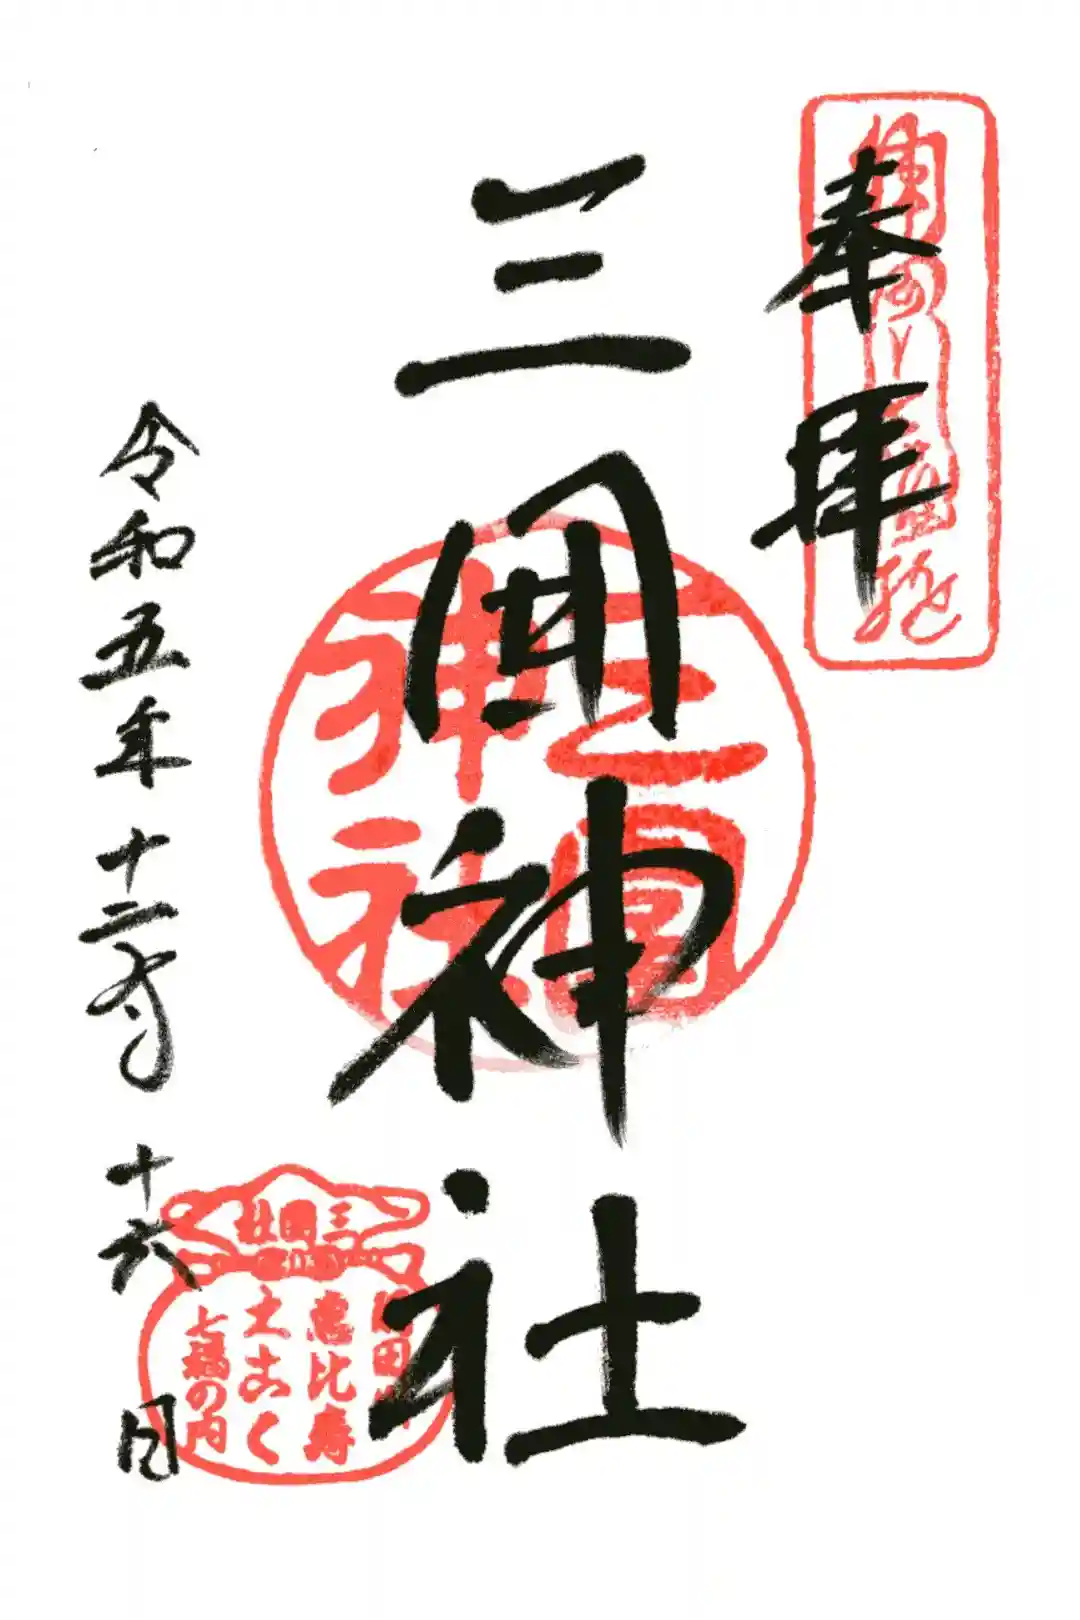 奉拝
三囲神社
三囲神社
令和五年十二月十六日
三囲社
隅田川
恵比寿
大こく
七福の内